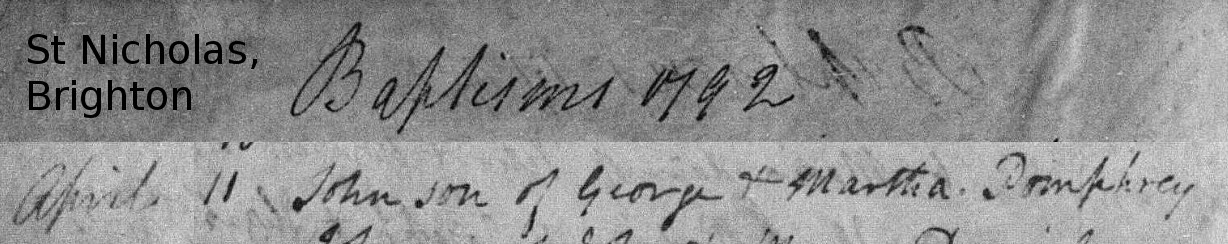 St Nicholas,
Brighton
Baptisms 1792
April 11 John son of George + Martha. Pomphrey